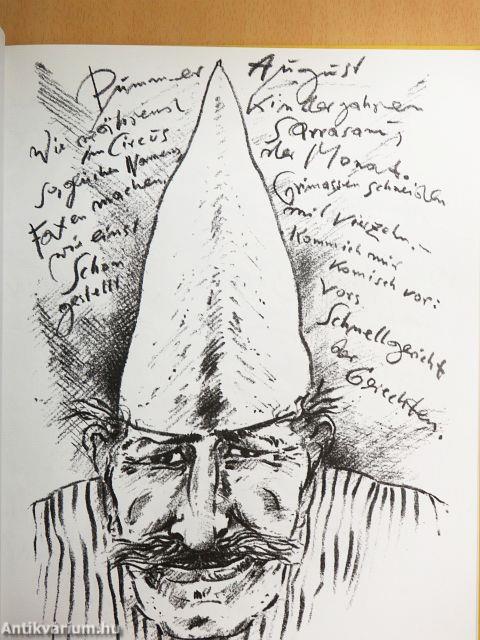 Dummer August
Wie während Kinderjahren
im Circus Sarrasani,
so gleichen Namens der Monat.
Faxen machen, Grimassen schneiden
wie einst mit vierzehn. –
Schon komm ich mir
komisch vor:
gestellt vors
Schnellgericht
der Gerechten.
Antikvárium.hu